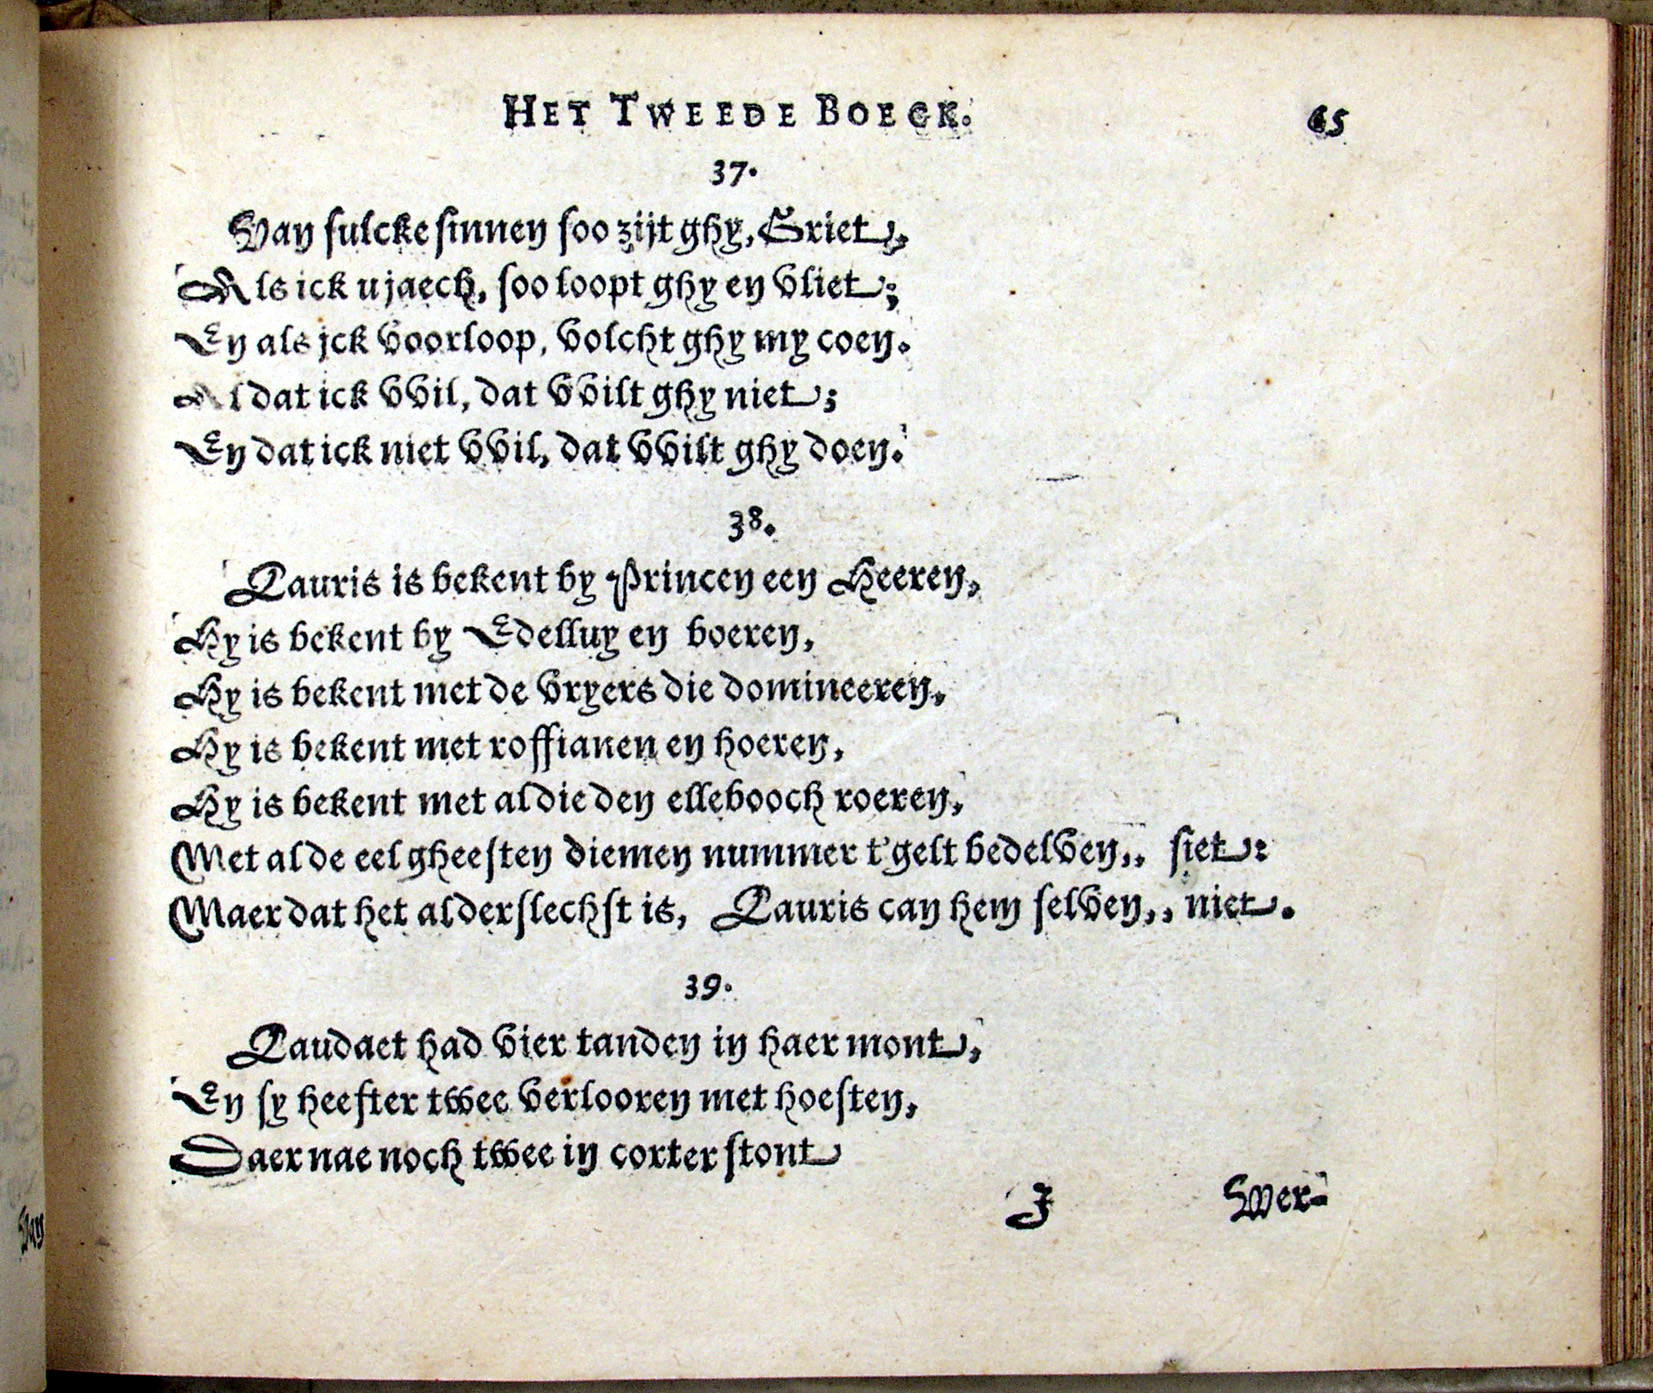 HET TWEEDE BOECK. 65
37.
Van sulcke sinnen soo zijt ghy, Griet,
Als ick u jaech, soo loopt ghy en vliet;
En als jck voorloop, volcht ghy my coen.
Al dat ick vvil, dat vvilt ghy niet;
En dat ick niet vvil, dat vvilt ghy doen.
38.
Lauris is bekent by Princen een Heeren,
Hy is bekent by Edelluy en boeren,
Hy is bekent met de vryers die domineeren,
Hy is bekent met roffianen en hoeren,
Hy is bekent met al die den ellebooch roeren,
Met al de eel gheesten diemen nummer t'gelt bedelven,, siet:
Maer dat het alderslechst is, Lauris can hem selven,, niet.
39.
Laudaet had vier tanden in haer mont,
En sy heefter twee verlooren met hoesten,
Daer nae noch twee in corter stont
I Wer-